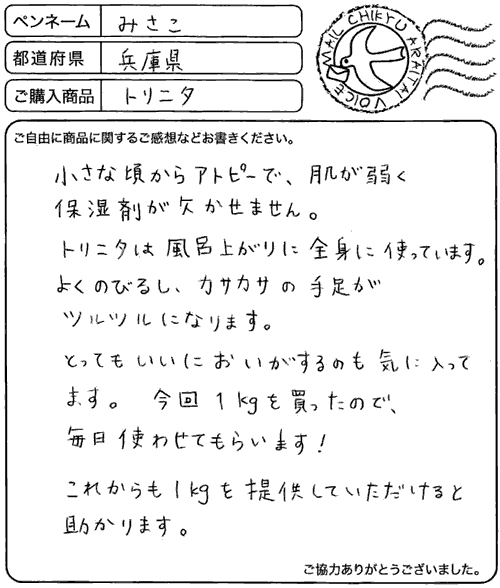 ペンネーム みさこ
都道府県 兵庫県
ご購入商品 トリニタ
MAIL CHIKYU ARAITAI VOICE
ご自由に商品に関するご感想などお書きください。
小さな頃からアトピーで、肌が弱く
保湿剤が欠かせません。
トリニタは風呂上がりに全身に使っています。
よくのびるし、カサカサの手足が
ツルツルになります。
とってもいいにおいがするのも気に入って
ます。 今回1kgを買ったので、
毎日使わせてもらいます！
これからも1kgを提供していただけると
助かります。
ご協力ありがとうございました。